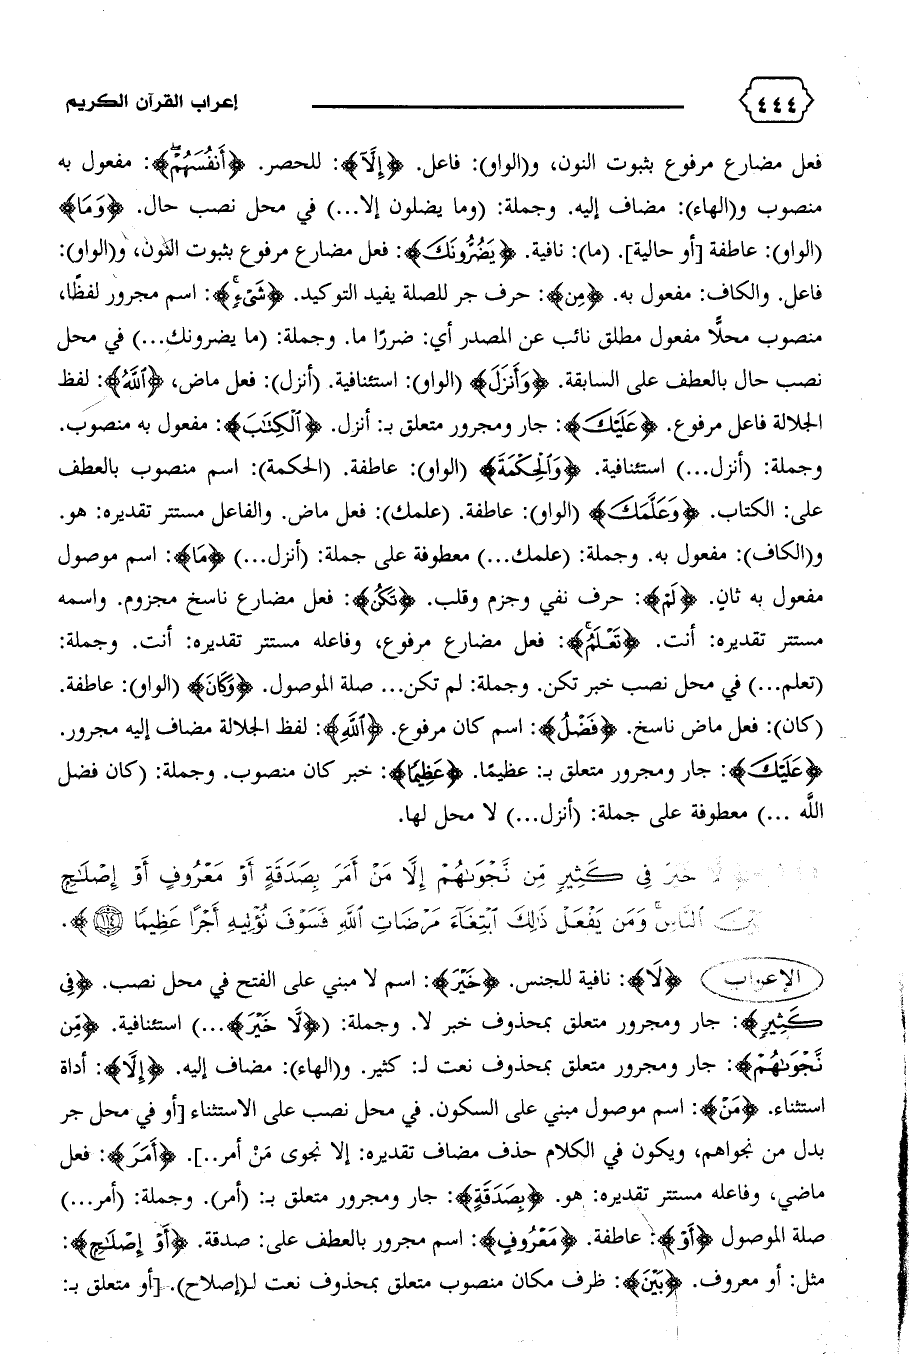 ٤٤٤ إعراب القرآن الكريم
فعل مضارع مرفوع بثبوت النون، و(الواو): فاعل. ﴿إِلَّآ﴾: للحصر. ﴿أَنفُسَهُمْ﴾: مفعول به
منصوب و(الهاء): مضاف إليه. وجملة: (وما يضلون إلا...) في محل نصب حال. ﴿وَمَا﴾
(الواو): عاطفة [أو حالية]. (ما): نافية. ﴿يَضُرُّونَكَ﴾: فعل مضارع مرفوع بثبوت النون، و(الواو):
فاعل. والكاف: مفعول به. ﴿مِن﴾: حرف جر للصلة يفيد التوكيد. ﴿شَىْءٍ﴾: اسم مجرور لفظًا،
منصوب محلًّا مفعول مطلق نائب عن المصدر أي: ضررًا ما. وجملة: (ما يضرونك...) في محل
نصب حال بالعطف على السابقة. ﴿وَأَنزَلَ﴾ (الواو): استئنافية. (أنزل): فعل ماض، ﴿ٱللَّهُ﴾: لفظ
الجلالة فاعل مرفوع. ﴿عَلَيْكَ﴾: جار ومجرور متعلق بـ: أنزل. ﴿ٱلْكِتَٰبَ﴾: مفعول به منصوب.
وجملة: (أنزل...) استئنافية. ﴿وَٱلْحِكْمَةَ﴾ (الواو): عاطفة. (الحكمة): اسم منصوب بالعطف
على: الكتاب. ﴿وَعَلَّمَكَ﴾ (الواو): عاطفة. (علمك): فعل ماض. والفاعل مستتر تقديره: هو.
و(الكاف): مفعول به. وجملة: (علمك...) معطوفة على جملة: (أنزل...) ﴿مَا﴾: اسم موصول
مفعول به ثانٍ. ﴿لَمْ﴾: حرف نفي وجزم وقلب. ﴿تَكُن﴾: فعل مضارع ناسخ مجزوم. واسمه
مستتر تقديره: أنت. ﴿تَعْلَمُ﴾: فعل مضارع مرفوع، وفاعله مستتر تقديره: أنت. وجملة:
(تعلم...) في محل نصب خبر تكن. وجملة: لم تكن... صلة الموصول. ﴿وَكَانَ﴾ (الواو): عاطفة.
(كان): فعل ماض ناسخ. ﴿فَضْلُ﴾: اسم كان مرفوع. ﴿ٱللَّهِ﴾: لفظ الجلالة مضاف إليه مجرور.
﴿عَلَيْكَ﴾: جار ومجرور متعلق بـ: عظيمًا. ﴿عَظِيمًا﴾: خبر كان منصوب. وجملة: (كان فضل
اللَّه ...) معطوفة على جملة: (أنزل...) لا محل لها.
لَّا خَيْرَ فِى كَثِيرٍ مِّن نَّجْوَىٰهُمْ إِلَّا مَنْ أَمَرَ بِصَدَقَةٍ أَوْ مَعْرُوفٍ أَوْ إِصْلَٰحٍۭ
بَيْنَ ٱلنَّاسِ وَمَن يَفْعَلْ ذَٰلِكَ ٱبْتِغَآءَ مَرْضَاتِ ٱللَّهِ فَسَوْفَ نُؤْتِيهِ أَجْرًا عَظِيمًا ١١٤﴾.
الإعراب ﴿لَّا﴾: نافية للجنس. ﴿خَيْرَ﴾: اسم لا مبني على الفتح في محل نصب. ﴿فِى
كَثِيرٍ﴾: جار ومجرور متعلق بمحذوف خبر لا. وجملة: (﴿لَّا خَيْرَ﴾...) استئنافية. ﴿مِّن
نَّجْوَىٰهُمْ﴾: جار ومجرور متعلق بمحذوف نعت لـ: كثير. و(الهاء): مضاف إليه. ﴿إِلَّا﴾: أداة
استثناء. ﴿مَنْ﴾: اسم موصول مبني على السكون. في محل نصب على الاستثناء [أو في محل جر
بدل من نجواهم، ويكون في الكلام حذف مضاف تقديره: إلا نجوى مَنْ أمر..]. ﴿أَمَرَ﴾: فعل
ماضي، وفاعله مستتر تقديره: هو. ﴿بِصَدَقَةٍ﴾: جار ومجرور متعلق بـ: (أمر). وجملة: (أمر...)
صلة الموصول ﴿أَوْ﴾: عاطفة. ﴿مَعْرُوفٍ﴾: اسم مجرور بالعطف على: صدقة. ﴿أَوْ إِصْلَٰحٍۭ﴾:
مثل: أو معروف. ﴿بَيْنَ﴾: ظرف مكان منصوب متعلق بمحذوف نعت لـ(إصلاح). [أو متعلق بـ: